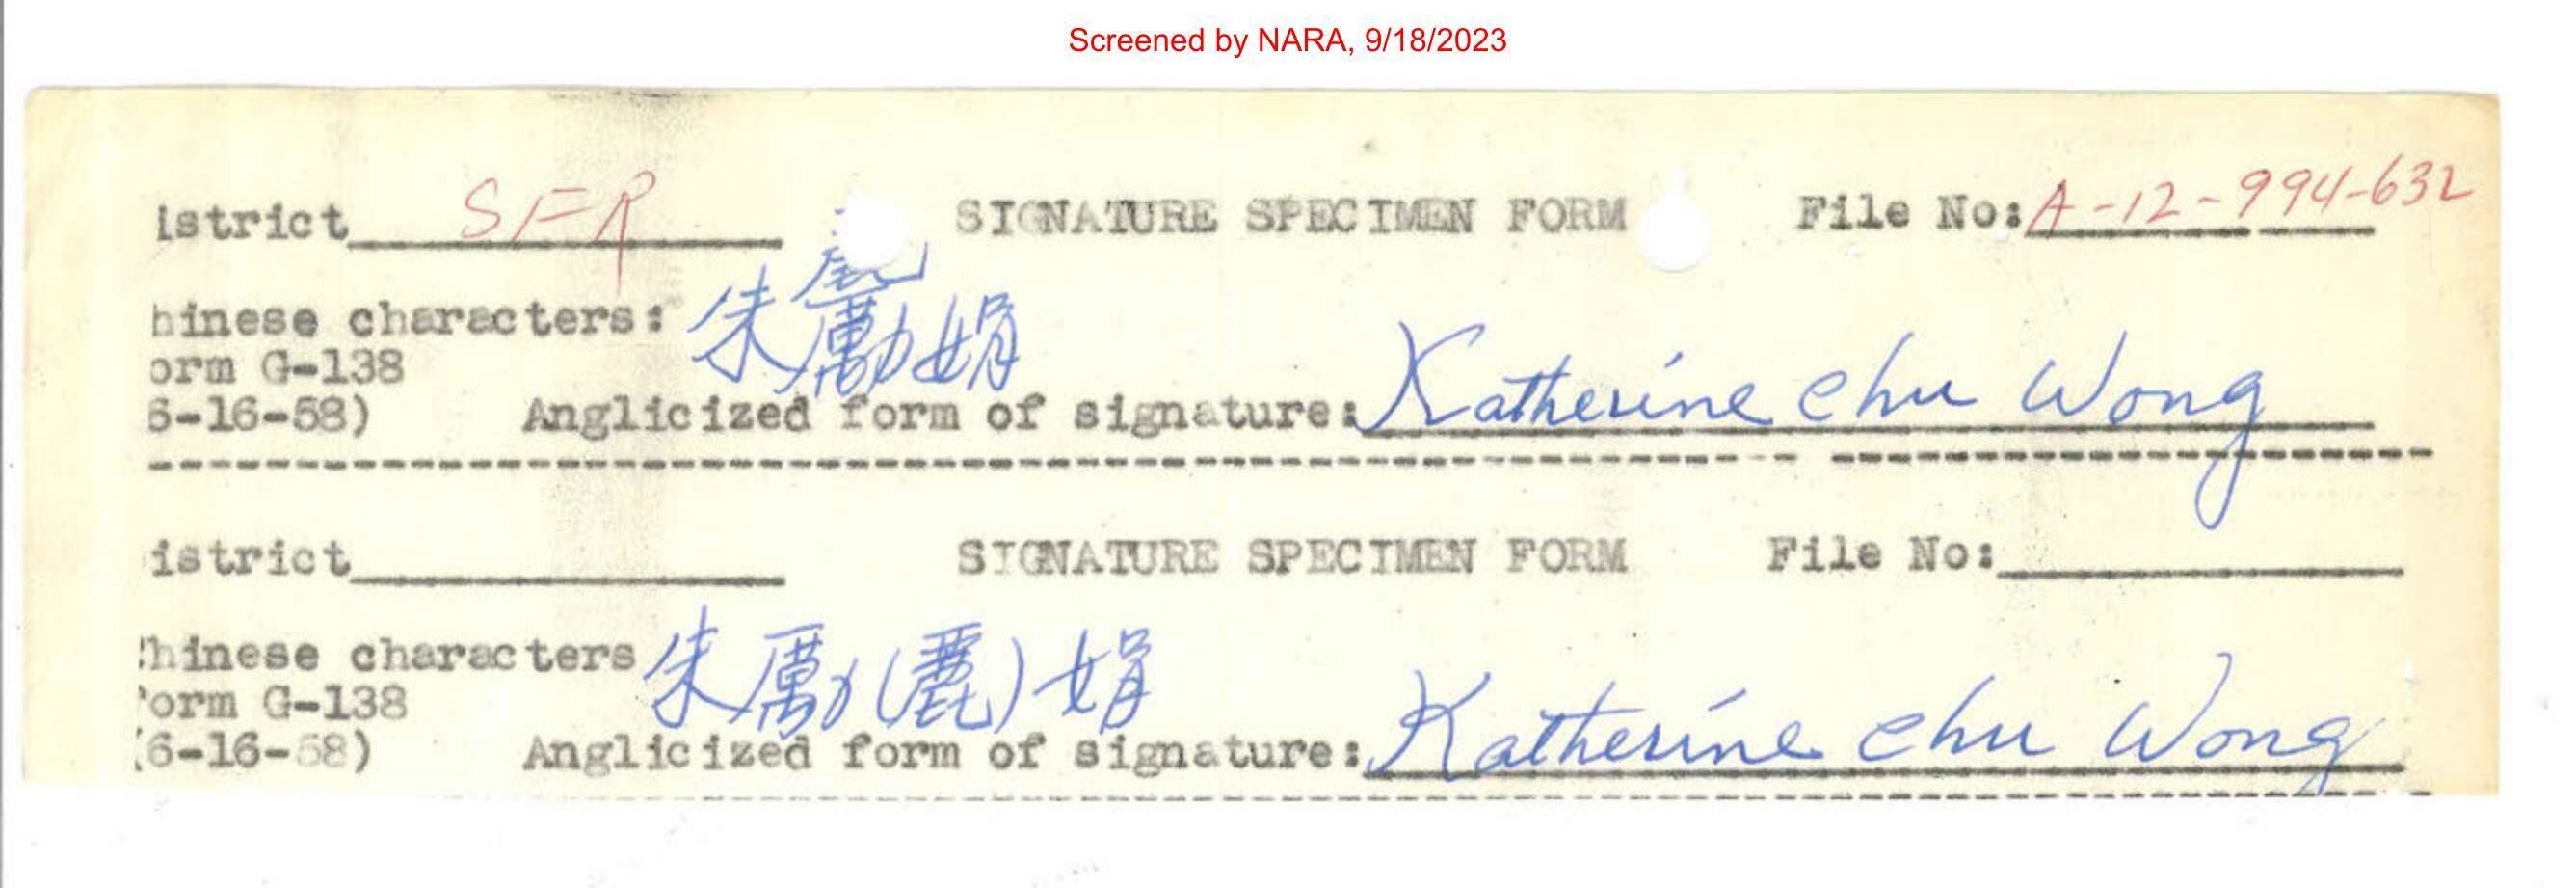 Screened by NARA, 9/18/2023
istrict SFR SIGNATURE SPECIMEN FORM File No: A-12-994-632
麗
hinese characters: 朱勵娟
orm G-138
6-16-58) Anglicized form of signature: Katherine Chu Wong
istrict SIGNATURE SPECIMEN FORM File No:
hinese characters 朱勵(麗)娟
orm G-138
(6-16-58) Anglicized form of signature: Katherine Chu Wong